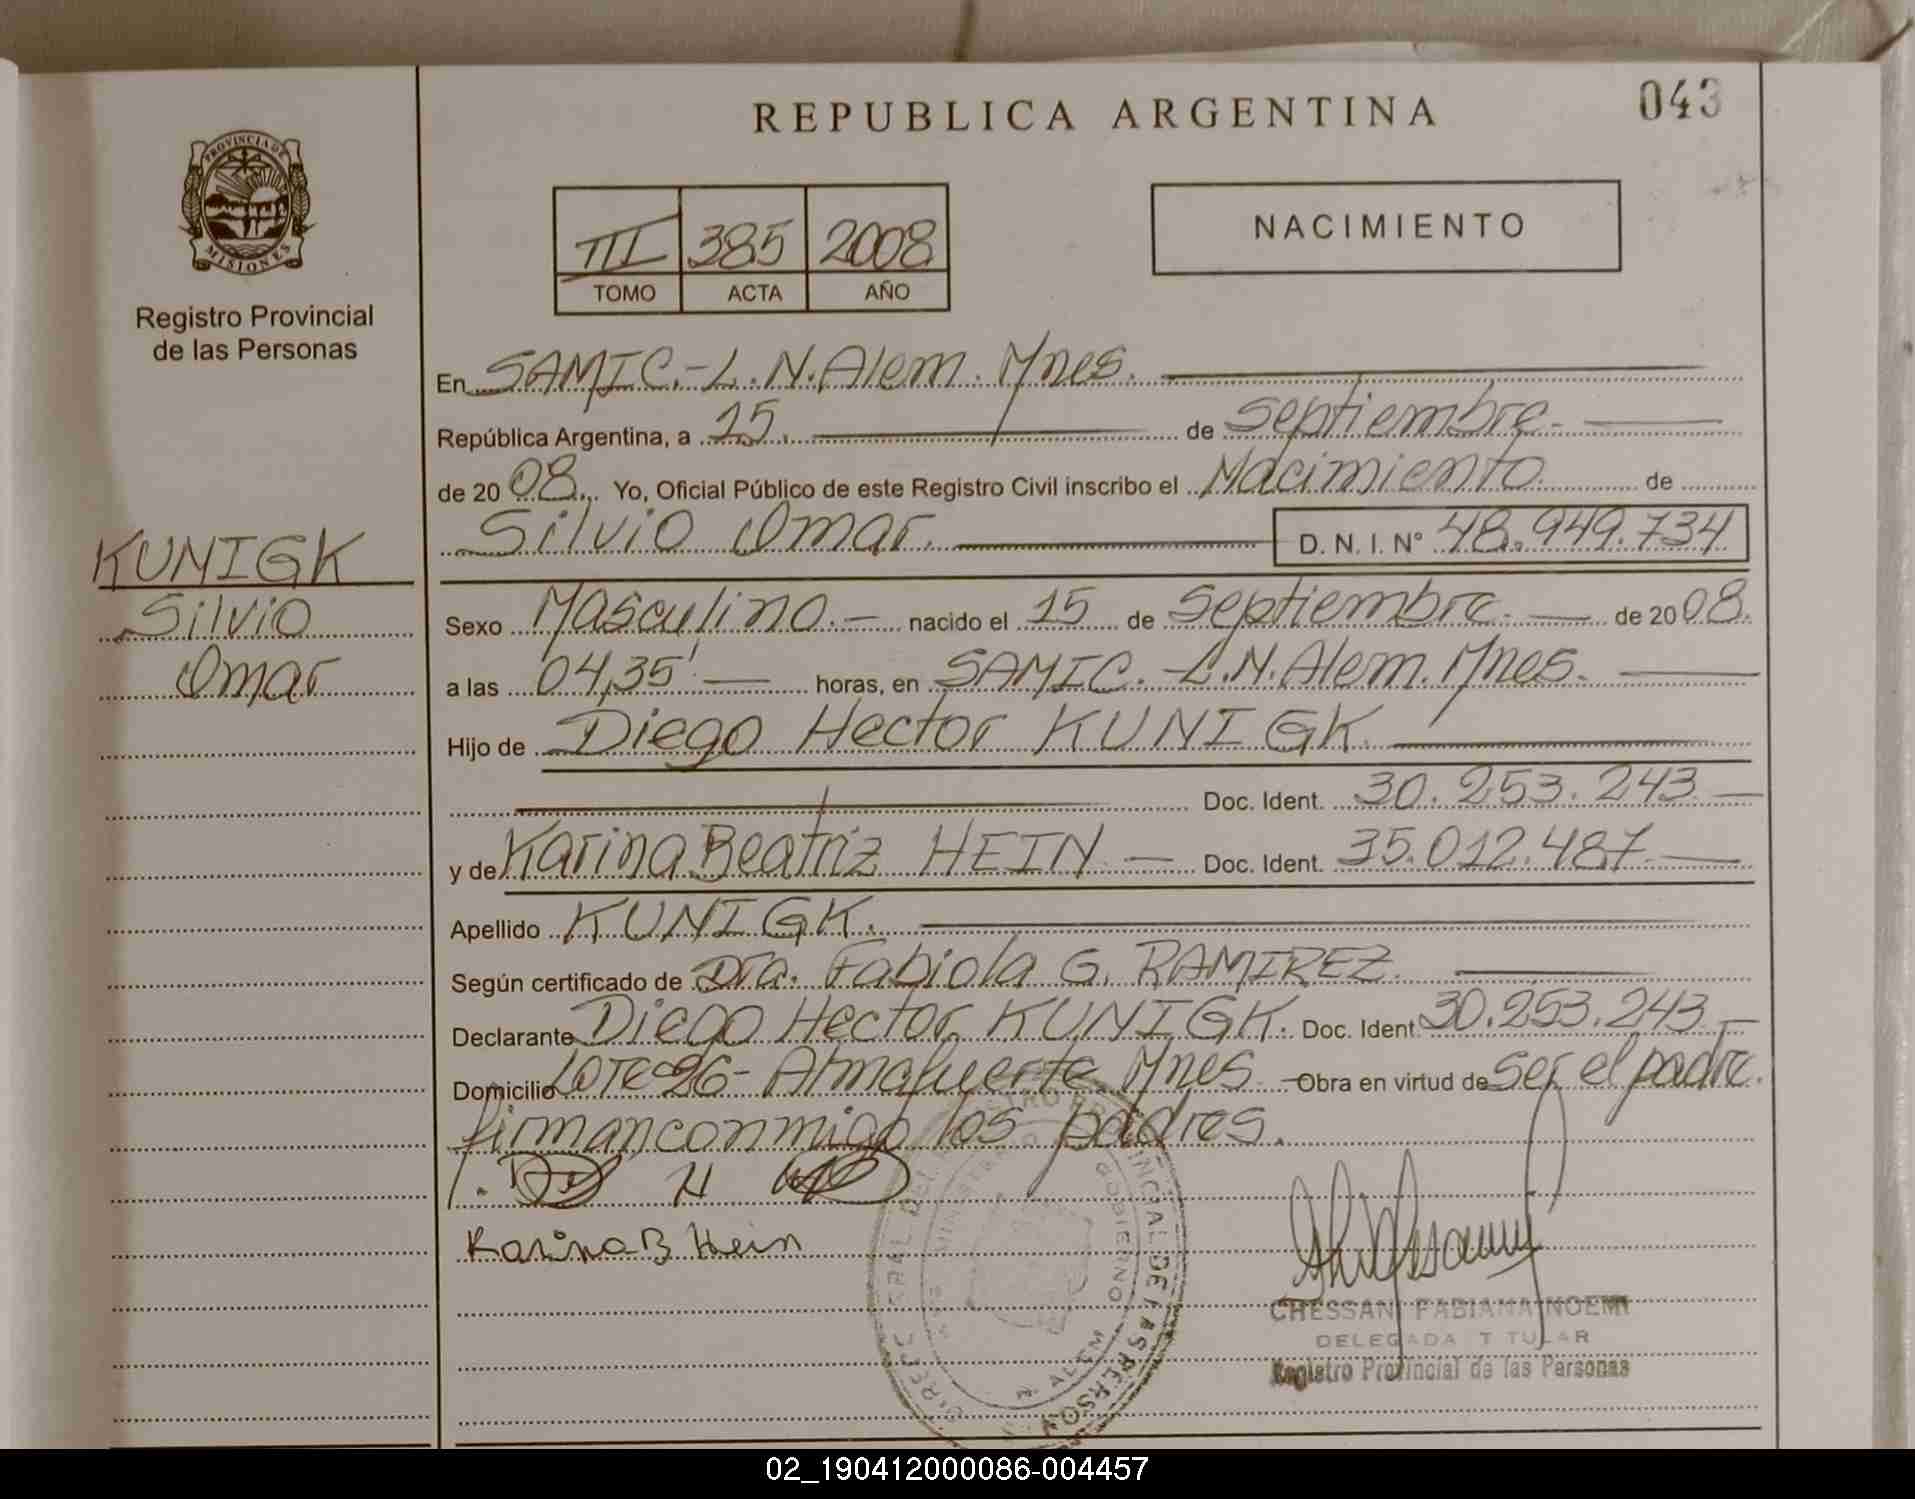 REPUBLICA ARGENTINA
043
PROVINCIA DE
MISIONES
Registro Provincial
de las Personas
III 385 2008
TOMO ACTA AÑO
NACIMIENTO
En SAMIC.-L.N.Alem. Mnes.
República Argentina, a 15. de septiembre.
de 2008. Yo, Oficial Público de este Registro Civil inscribo el Nacimiento de
Silvio Omar. D. N. I. Nº 48.949.734
KUNIGK
Silvio
Omar
Sexo Masculino.- nacido el 15 de septiembre.- de 2008.
a las 04,35' horas, en SAMIC.-L.N.Alem.Mnes.
Hijo de Diego Hector KUNIGK.
Doc. Ident. 30.253.243
y de Karina Beatriz HEIN Doc. Ident. 35.012.487.
Apellido KUNIGK.
Según certificado de Dra. Fabiola G. RAMIREZ.
Declarante Diego Hector KUNIGK. Doc. Ident. 30.253.243
Domicilio Lote 26- Almafuerte Mnes. Obra en virtud de ser el padre.
firman conmigo los padres.
Karina B Hein
CHESSANI FABIANA NOEMI
DELEGADA TITULAR
Registro Provincial de las Personas
02_190412000086-004457